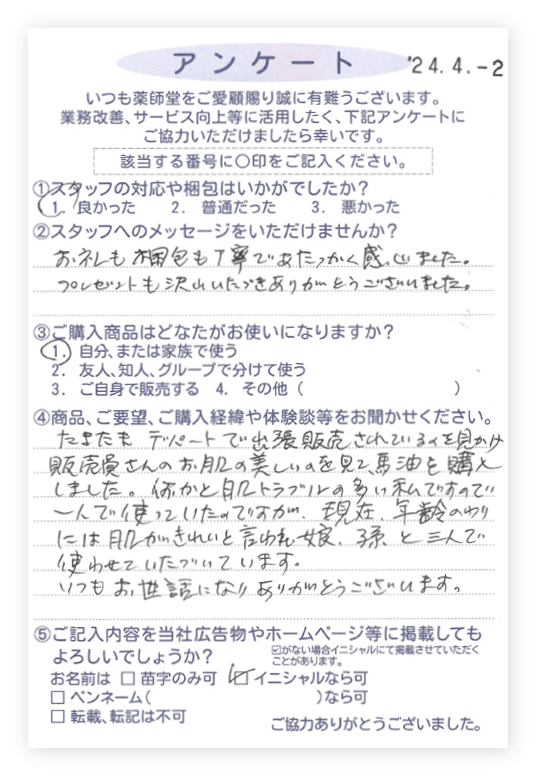 アンケート
'24.4.-2
いつも薬師堂をご愛顧賜り誠に有難うございます。
業務改善、サービス向上等に活用したく、下記アンケートに
ご協力いただけましたら幸いです。
該当する番号に〇印をご記入ください。
①スタッフの対応や梱包はいかがでしたか?
1. 良かった 2. 普通だった 3. 悪かった
②スタッフへのメッセージをいただけませんか?
お礼も梱包も丁寧であたゝかく感じました。
プレゼントも沢山いたゞきありがとうございました。
③ご購入商品はどなたがお使いになりますか?
1. 自分、または家族で使う
2. 友人、知人、グループで分けて使う
3. ご自身で販売する 4. その他( )
④商品、ご要望、ご購入経緯や体験談等をお聞かせください。
たまたま デパートで出張販売されているのを見かけ
販売員さんのお肌の美しいのを見て、馬油を購入
しました。何かと肌トラブルの多い私ですので
一人で使っていたのですが、現在、年齢のわり
には肌がきれいと言われ、娘、孫と三人で
使わせていたゞいています。
いつもお世話になりありがとうございます。
⑤ご記入内容を当社広告物やホームページ等に掲載しても
よろしいでしょうか?
☑がない場合イニシャルにて掲載させていただく
ことがあります。
お名前は □ 苗字のみ可 ☑イニシャルなら可
□ ペンネーム( )なら可
□ 転載、転記は不可
ご協力ありがとうございました。